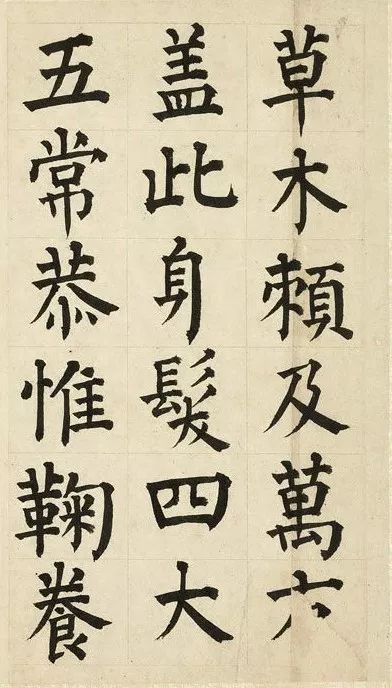 草木頼及萬
盖此身髮四大
五常恭惟鞠養